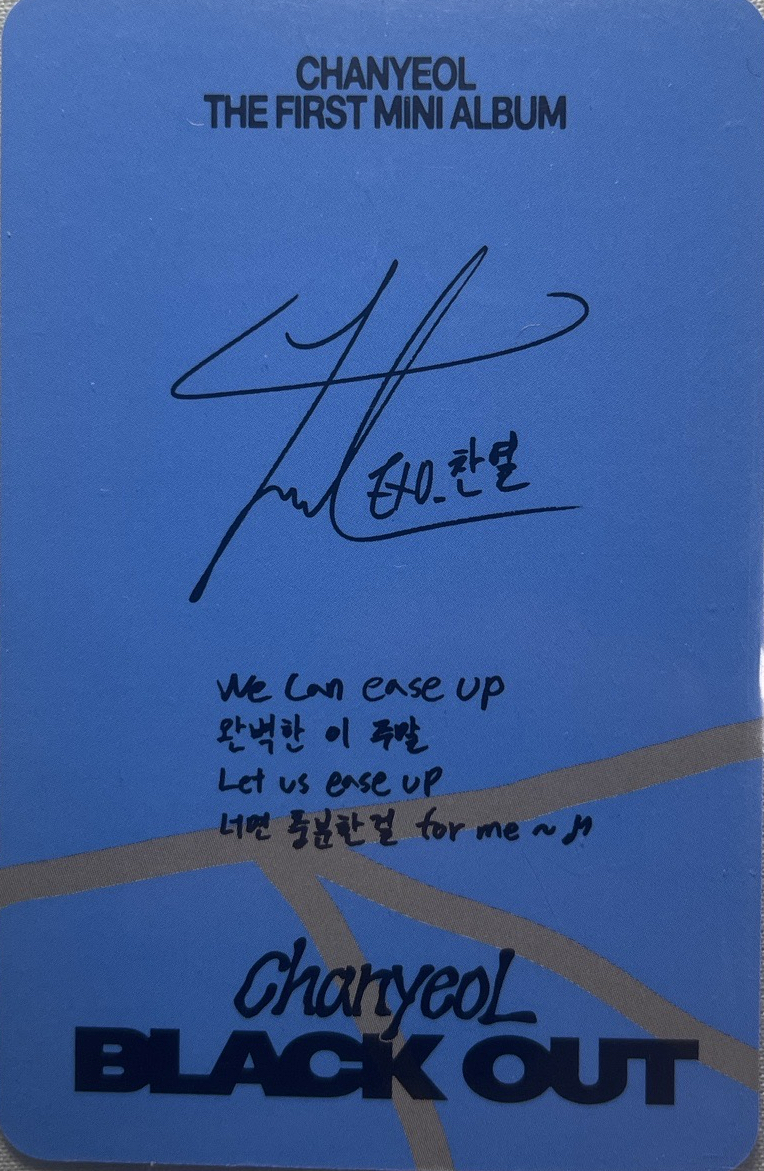 CHANYEOL
THE FIRST MINI ALBUM
EXO_찬열
We can ease up
완벽한 이 주말
Let us ease up
너면 충분한걸 for me ~ ♬
Chanyeol
BLACK OUT